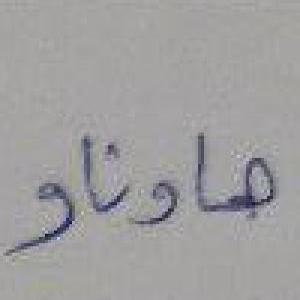 هاوناو